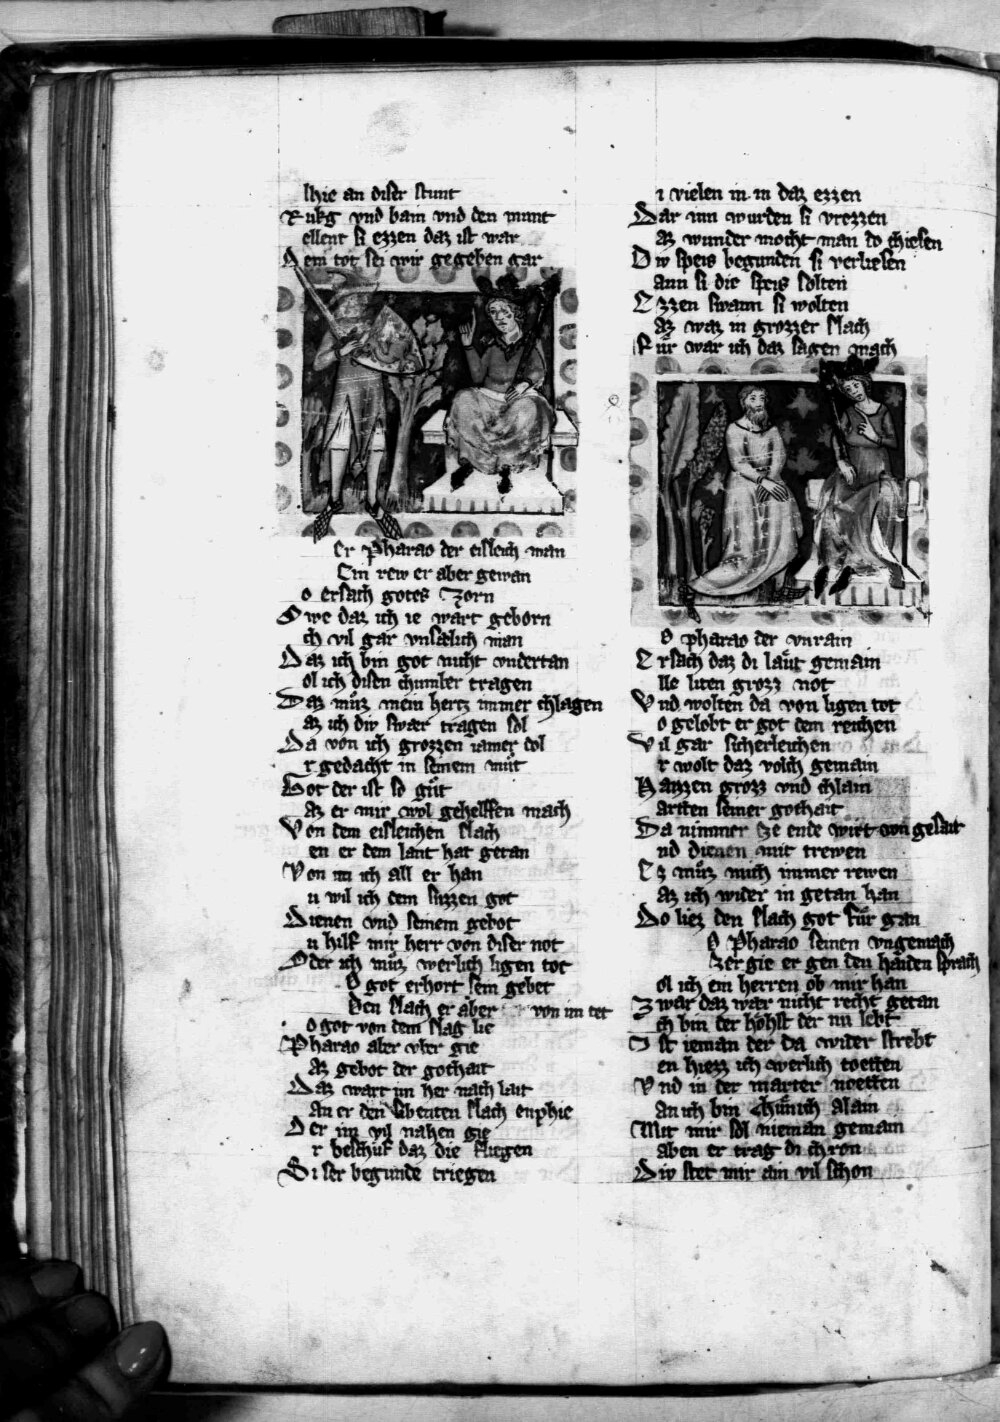 hie an diser stunt
Rukg vnd bain vnd den munt
ellent si ezzen daz ist war
Dem tot sei wir gegeben gar
er Pharao der eisleich man
Ein rew er aber gewan
o ersach gotes zorn
Owe daz ich ie wart geborn
ch vil gar vnsælich man
Daz ich bin got nicht vndertan
ol ich disen chumber tragen
Daz můz mein hertz immer chlagen
az ich div swær tragen sol
Da von ich grozzen iamer dol
r gedacht in seinem můt
Got der ist so gůt
az er mir wol gehelffen mach
Von dem eisleichen slach
en er dem lant hat getan
Von im ich all er han
u wil ich dem suzzen got
Dienen vnd seinem gebot
u hilf mir herr von diser not
Oder ich můz werlich ligen tot
O got erhort sein gebet
Den slach er aber von im tet
o got von dem slag lie
Pharao aber vber gie
az gebot der gothait
Daz wart im her nach lait
an er den sibenten slach enphie
Der im vil nahen gie
r beschuf daz die fliegen
Diser begunde triegen
i vielen in in daz ezzen
Dar inn wurden si vrezzen
az wunder mocht man do chiesen
Div speis begunden si verliesen
ann si die speis solten
Ezzen swann si wolten
az waz in grozzer slach
Für war ich daz sagen mach
O pharao der vnrain
Ersach daz di laüt gemain
lle liten grozz not
Vnd wolten da von ligen tot
o gelobt er got dem reichen
Vil gar sicherleichen
r wolt daz volch gemain
Haizzen grozz vnd chlain
artten seiner gothait
Da nimmer ze ende wirt von gesait
nd dienen mit trewen
Ez můz mich immer rewen
az ich wider in getan han
Do liez den slach got für gan
O Pharao seinen vngemach
Vergie er gen den haiden sprach
ol ich ein herren ob mir han
Zwar daz wær nicht recht getan
ch bin der höhst der nu lebt
Ist ieman der da wider strebt
en hiezz ich werlich toetten
Vnd in der marter noetten
an ich bin chünich alain
Mit mir sol nieman gemain
aben er trag di chron
Div stet mir ain vil schon